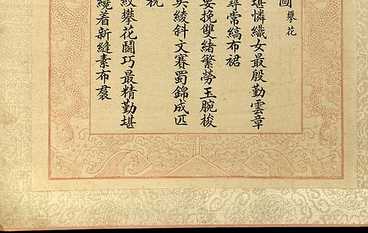 圖 攀花
堪憐織女最殷勤雲章
尋常縞布裙
要挽雙緒繁勞玉腕梭
吳綾斜文賽蜀錦成匹
祝
紋攀花鬪巧最精勤堪
繞着新縫素布裠